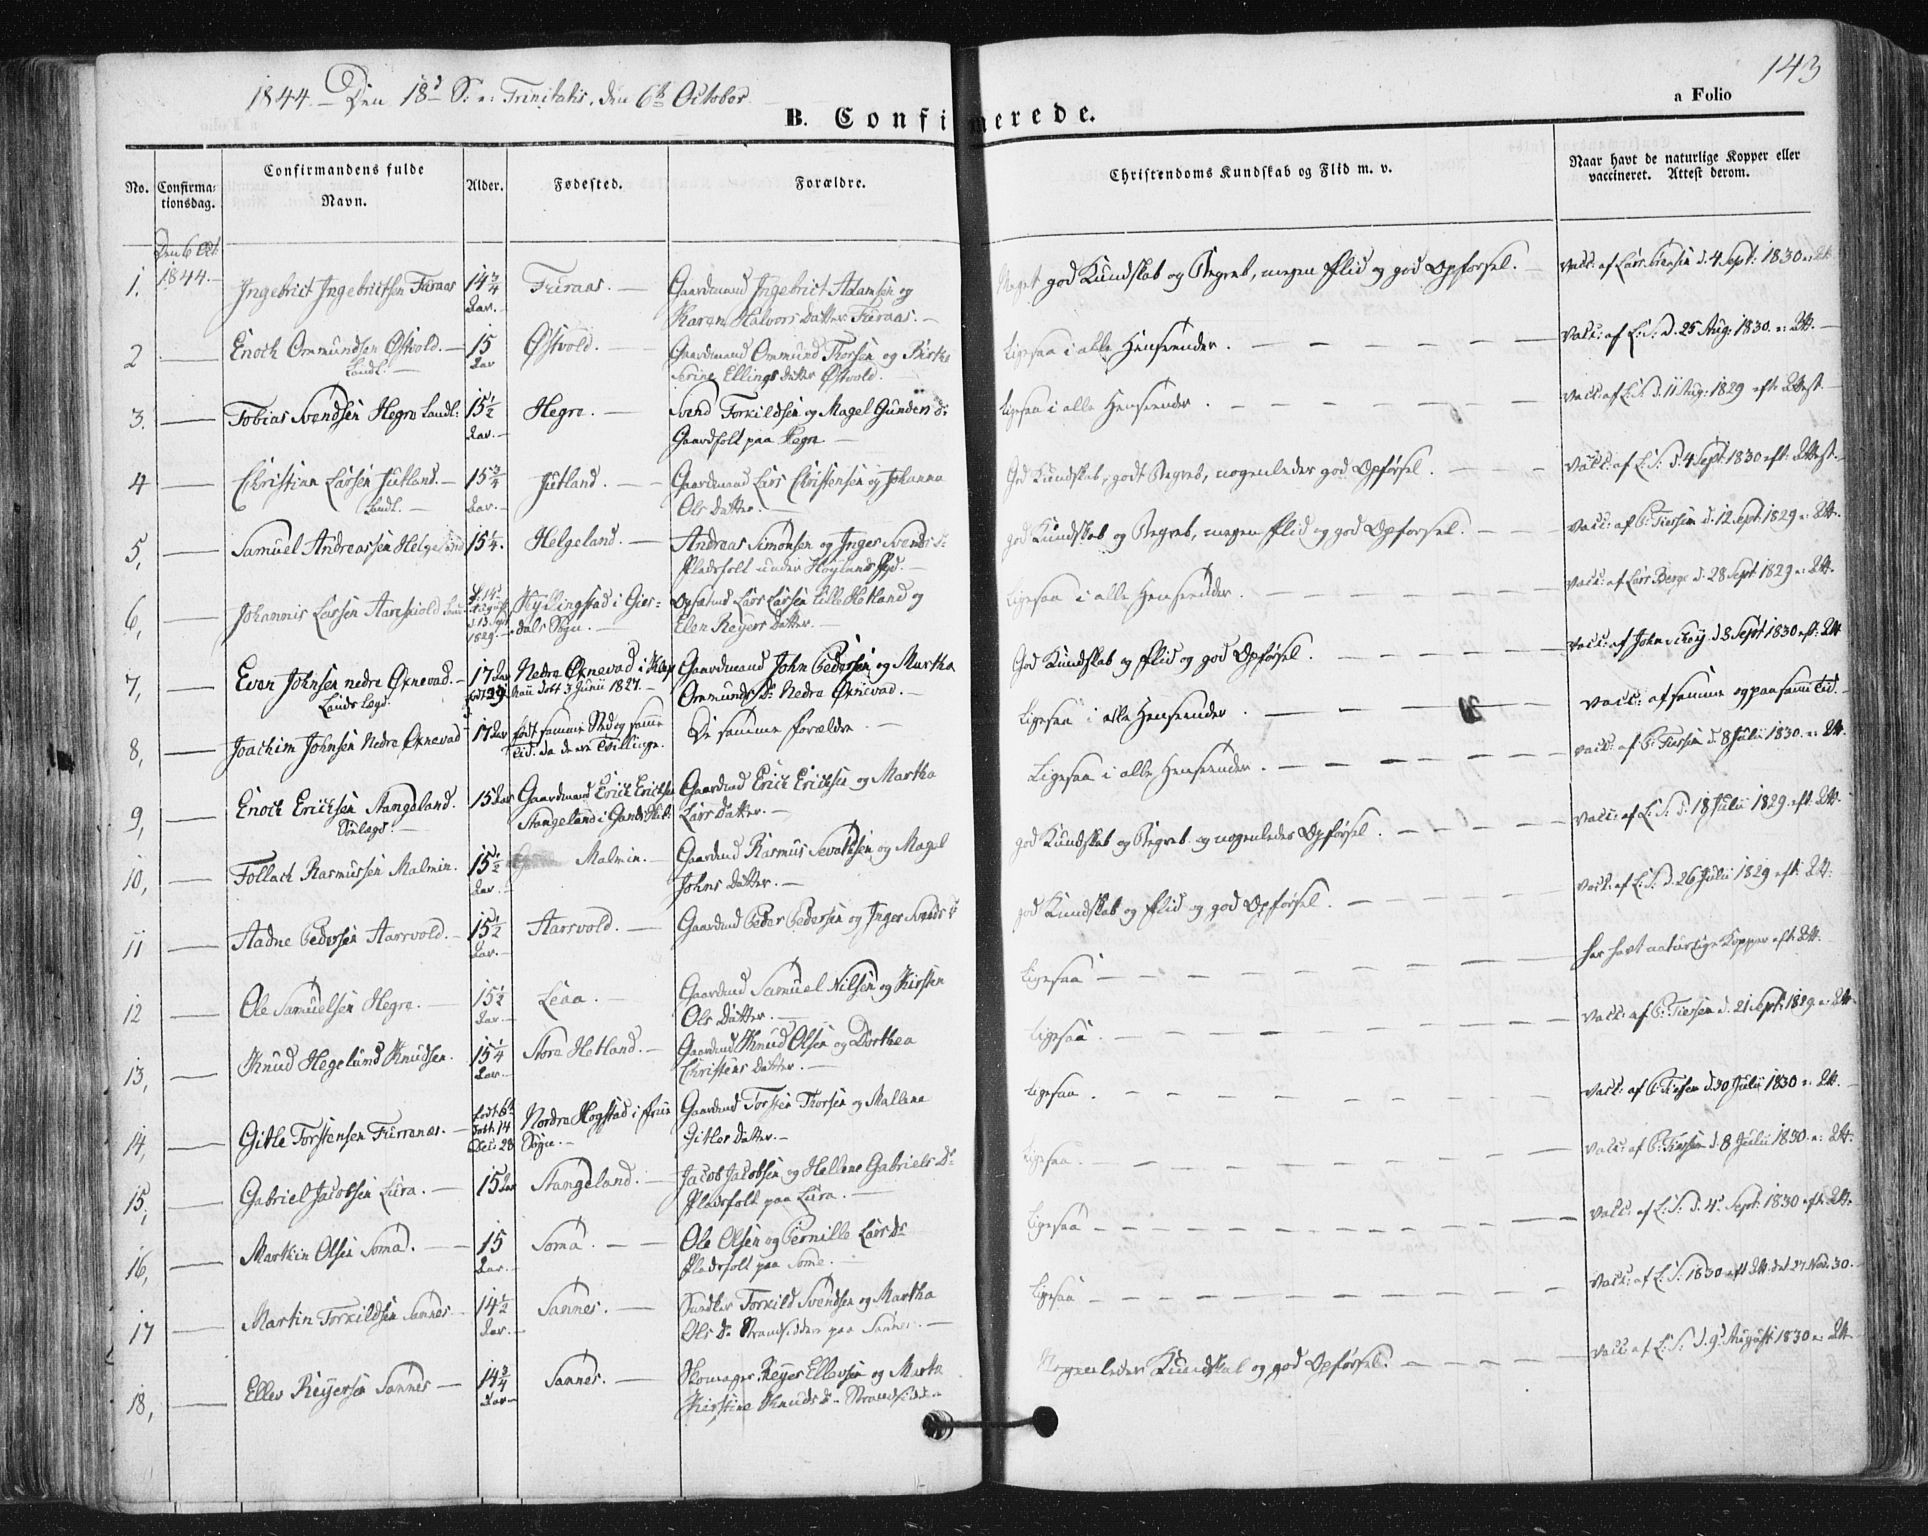 1844 — Den 18d S: e: Trinitatis, den 6te October
143
B. Confirmerede.
a Folio
No.
Confirma-
tionsdag.
Confirmandens fulde
Navn.
Alder.
Fødested.
Forældre.
Christendoms Kundskab og Flid m. v.
Naar havt de naturlige Kopper eller
vaccineret. Attest derom.
Den 6 Oct
1. 1844. Ingebrict Ingebrictsen Furaas 14 3/4 Fuiraas. — Gaardmand Ingebrict Adamsen og Meget god Kundskab og Begreb, megen Flid og god Opførsel. — vacc: af Lars Tiersen d. 4 Sept: 1830 e: Att
Aar. — Karen Halvors Datter Fuiraas. —
2 — Enoch Ommundsen Østvold. — 15 Østvold. — Gaardmand Ommund Thorsen og Birthe Ligesaa i alle Henseender. — vacc: af L: S: d. 25 Aug: 1830. e: Att. —
Landl. — Aar Serine Ellings Datter Østvold. —
3. — Tobias Svendsen Hegre Landl: 15 1/2 Hegre. — Svend Torkildsen og Magel Gunders D: Ligesaa i alle Henseender. — vacc: af L: S: d. 11 Aug: 1829 eft: Attest
Aar. — Gaardfolk paa Hegre —
4 — Christian Larsen Jutland. — 15 3/4 Jutland. — Gaardmand Lars Christensen og Johanna God Kundskab, godt Begreb, nogenledes god Opførsel. — vacc: af L: S: d. 4 Sept: 1830 eft: Attest. —
Landl. — Aar. — Ols Datter. —
5, — Samuel Andreassen Helgeland 15 1/4. Helgeland. — Andreas Simonsen og Inger Svends D: god Kundskab og Begreb, megen Flid og god Opførsel. — vacc: af P: Tiersen d. 12 Sept: 1829 e: Att.
Pladsfolk under Høyland Pgd. —
6, — Johannis Larsen Aareskiold 14 Kyllingstad i Gies- Opsidd Lars Larsen Lille Hetland og Ligesaa i alle Henseender. — vacc: af Lars Berge d. 28 Sept 1829 e: Att.
1829. — dals Sogn. — Elen Reyers Datter. —
7, — Even Johnsen nedre Øxnevad. — 17 Aar Nedre Øxnevad i Klep Gaardmand John Pedersen og Martha God Kundskab og Flid og god Opførsel. — vacc: af John d. 8 Sept 1830 eft: Att
Lands lægd. 3 Junii 1827. — Ommunds D: Nedre Øxnevad. —
8, — Joachim Johnsen Nedre Øxnevad 17 Aar født samme Sted og samme De samme Forældre — Ligesaa i alle Henseender. — vacc: af samme og paa samme Tid. —
Tid. da de ere Tvillinge.
9, — Enoch Ericksen Stangeland. 15 Aar Gaardmand Erick Ericksen Gaardmd Erick Ericksen og Martha Ligesaa i alle Henseender. — vacc: af P: Tiersen d. 8 Julii 1830. e: Att.
Søelægd. — Stangeland i Gands Skib: Lars Datter. —
10, — Tollach Rasmussen Malmin. 15 1/2 Malmin. — Gaardmd Rasmus Sevaldsen og Magel god Kundskab og Begreb og nogenledes Opførsel. — vacc: af L: S: d. 18 Julii 1829. eft: Att.
Aar. — Johns Datter. —
11 — Aadne Pedersen Aarsvold. — 15 1/2 Aarsvold. — Gaardmd Peder Pedersen og Inger Svends D: god Kundskab og Flid og god Opførsel. — vacc: af L: S: d. 26 Julii 1829 eft: Att:
Aar. —
12 — Ole Samuelsen Hegre. — 15 1/2 Leaa. — Gaardmd Samuel Nilsen og Kirsten Ligesaa — har havt naturlige Kopper eft: Att.
Aar. — Ols Datter. —
13, — Knud Hegelund Knudsen. 15 1/4 Store Hetland. — Gaardmd Knud Olsen og Dorthea Ligesaa. — vacc: af P: Tiersen d. 21 Sept: 1829. e: Att.
Aar. — Christens Datter. —
14, — Gitle Torstensen Furrenes. — født 6te Nordre Hogstad i Gaardmd Torsten Thorsen og Mallena Ligesaa. — vacc: af P: Tiersen d. 30 Julii 1830 e: Att. —
Sogn. — Gitles Datter. —
15, — Gabriel Jacobsen Lura. — 15 Aar Stangeland. — Jacob Jacobsen og Hellene Gabriels D: Ligesaa. — vacc: af P: Tiersen d. 8 Julii 1830. e: Att.
Pladsfolk paa Lura. —
16, — Marthin Olsen Soma. — 15 Soma. — Ole Olsen og Pernille Lars D: Ligesaa — vacc: af L: S: d. 4 Sept: 1830 eft: Att.
Aar. — Pladsfolk paa Some. —
17 — Martin Torkildsen Sannes — 14 1/2 Sannes. — Torkild Svendsen og Martha Ligesaa — vacc: af L: S: 1830 eft Att. det 27 Nov: 30. —
Aar. — Ols D: Strandsiddere paa Sannes. —
18, — Ellev Reyersen Sannes — 14 3/4 Sannes. — Skomager Reyer Ellevsen og Marth Nogenledes Kundskab og god Opførsel. — vacc: af L: S: d. 9d August 1830 e: Att. —
Aar — Kirstine Knuds D. Strandsidd